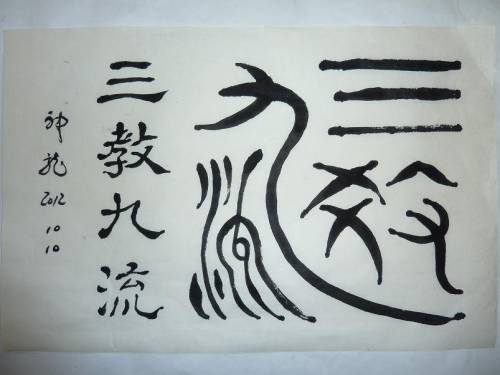 三教
九流
三教九流
神龍 2012 10 10